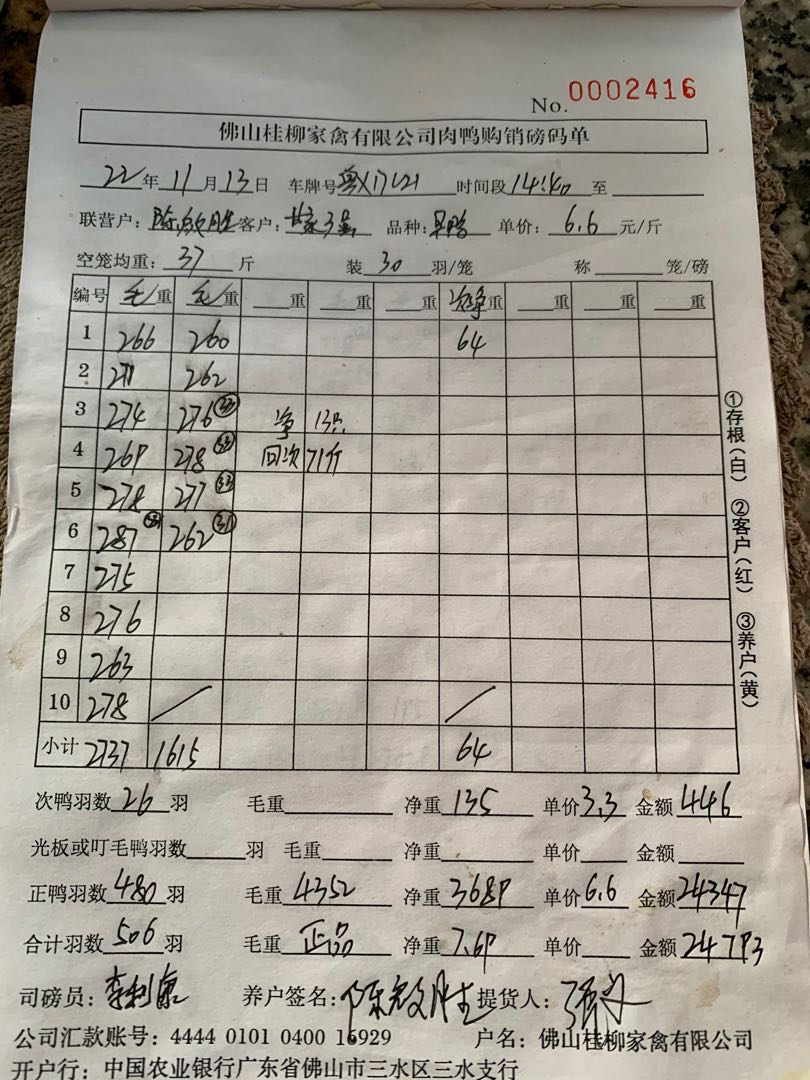 No. 0002416
佛山桂柳家禽有限公司肉鸭购销磅码单
22年11月13日 车牌号 时间段14:40至
联营户：陈敏胜 客户： 品种： 单价：6.6元/斤
空笼均重：37斤 装30羽/笼 称 笼/磅
编号 毛/重 毛/重 重 重 重 重 重 重 重
1 266 260 64
2 271 262
3 274 276 33 净 13只
4 269 278 33 回次 71斤
5 278 277 33
6 287 262 31
7 275
8 276
9 263
10 278 / /
小计 2737 1615 64
次鸭羽数26羽 毛重 净重135 单价3.3 金额446
光板或叮毛鸭羽数 羽 毛重 净重 单价 金额
正鸭羽数480羽 毛重4352 净重3689 单价6.6 金额24347
合计羽数506羽 毛重正品 净重7.69 单价 金额24793
司磅员：李利康 养户签名：陈敏胜 提货人：
公司汇款账号：4444 0101 0400 15929 户名：佛山桂柳家禽有限公司
开户行：中国农业银行广东省佛山市三水区三水支行
①存根(白) ②客户(红) ③养户(黄)